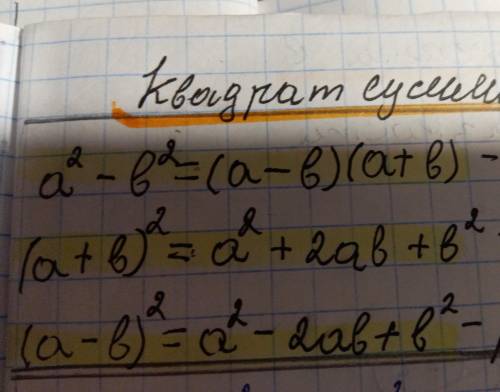 Квадрат суммы
a² - b² = (a - b)(a + b) -
(a + b)² = a² + 2ab + b²
(a - b)² = a² - 2ab + b² -